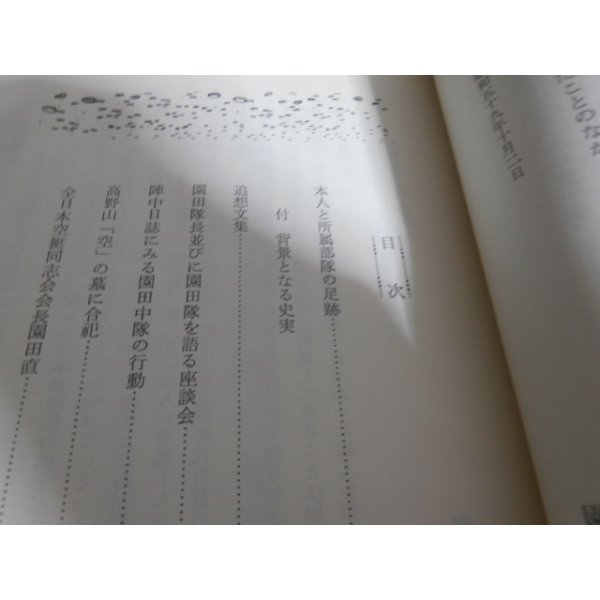 ことのな
昭和五十九年十月二日
目次
本人と所属部隊の足跡
付 背景となる史実
追想文集
園田隊長並びに園田隊を語る座談会
陣中日誌にみる園田中隊の行動
高野山「空」の墓に合祀
全日本空挺同志会会長園田直